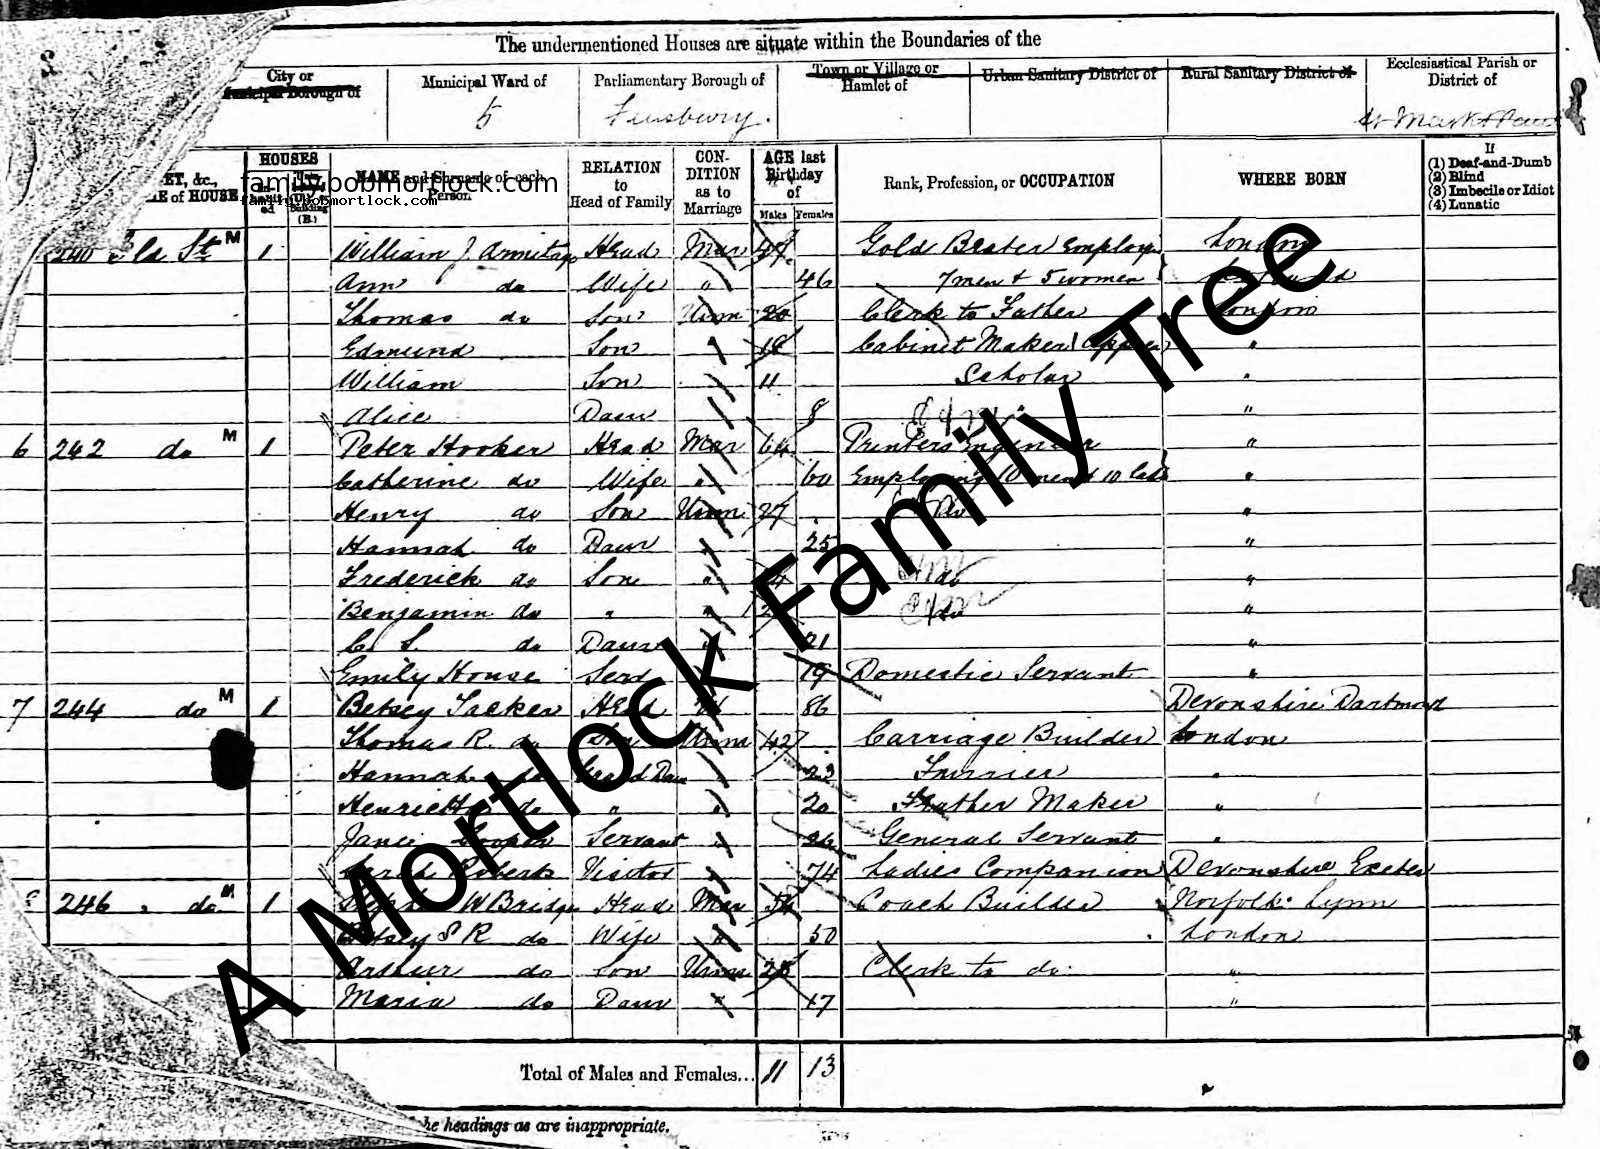 The undermentioned Houses are situate within the Boundaries of the
City or Municipal Borough of
Municipal Ward of
Parliamentary Borough of
Town or Village or Hamlet of
Urban Sanitary District of
Rural Sanitary District of
Ecclesiastical Parish or District of
5 Finsbury. St Mark
HOUSES
NAME and Surname of each Person
RELATION to Head of Family
CONDITION as to Marriage
AGE last Birthday of
Males Females
Rank, Profession, or OCCUPATION
WHERE BORN
If
(1) Deaf-and-Dumb
(2) Blind
(3) Imbecile or Idiot
(4) Lunatic
family.bobmortlock.com
family.bobmortlock.com
240 St M 1 William J. Armitage Head Mar 47 Gold Beater Employing London
Ann do Wife " 46 7 men & 5 women
Thomas do Son Unm 20 Clerk to Father London
Edmund Son 18 Cabinet Maker "
William Son 11 Scholar "
Alice Daur 8 "
6 242 do M 1 Peter Hooker Head Mar 64 Printers Engineer "
Catherine do Wife " 60 Employing 10 men & 10 lads "
Henry do Son Unm 27 do "
Hannah do Daur " 25 "
Frederick do Son " do "
Benjamin do " " do "
C. S. do Daur " 21 "
Emily House Serv 19 Domestic Servant "
7 244 do M 1 Betsey Tacker Head 86 Devonshire
Thomas R. do Son Unm 42 Carriage Builder London
Hannah do Grand Daur " 23 Furrier "
Henrietta do " " 20 Feather Maker "
Jane Cooper Servant " 26 General Servant "
Roberts Visitor " 74 Ladies Companion Devonshire Exeter
246 do M 1 W Bridges Head Mar 54 Coach Builder Norfolk Lynn
Betsey S R do Wife " 50 London
Arthur do Son Unm Clerk to do "
Maria do Daur " 17 "
Total of Males and Females... 11 13
the headings as are inappropriate.
A Mortlock Family Tree